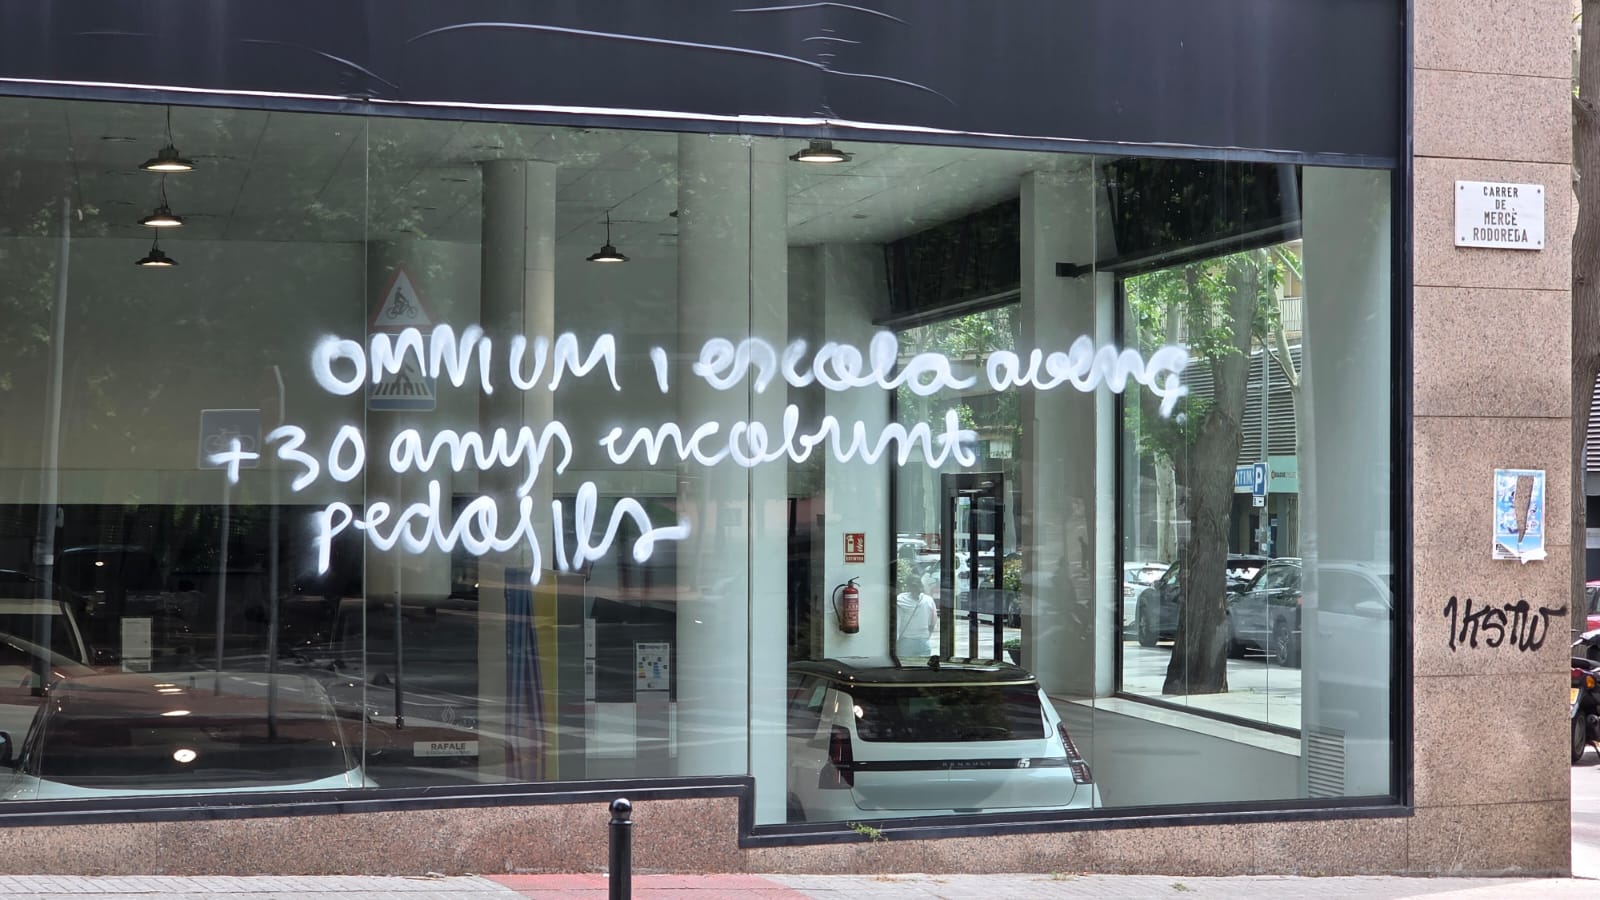 CARRER
DE
MERCÈ
RODOREDA
OMNIUM i escola avenç
+30 anys encobrint
pedofils
P
RAFALE
RENAULT
5